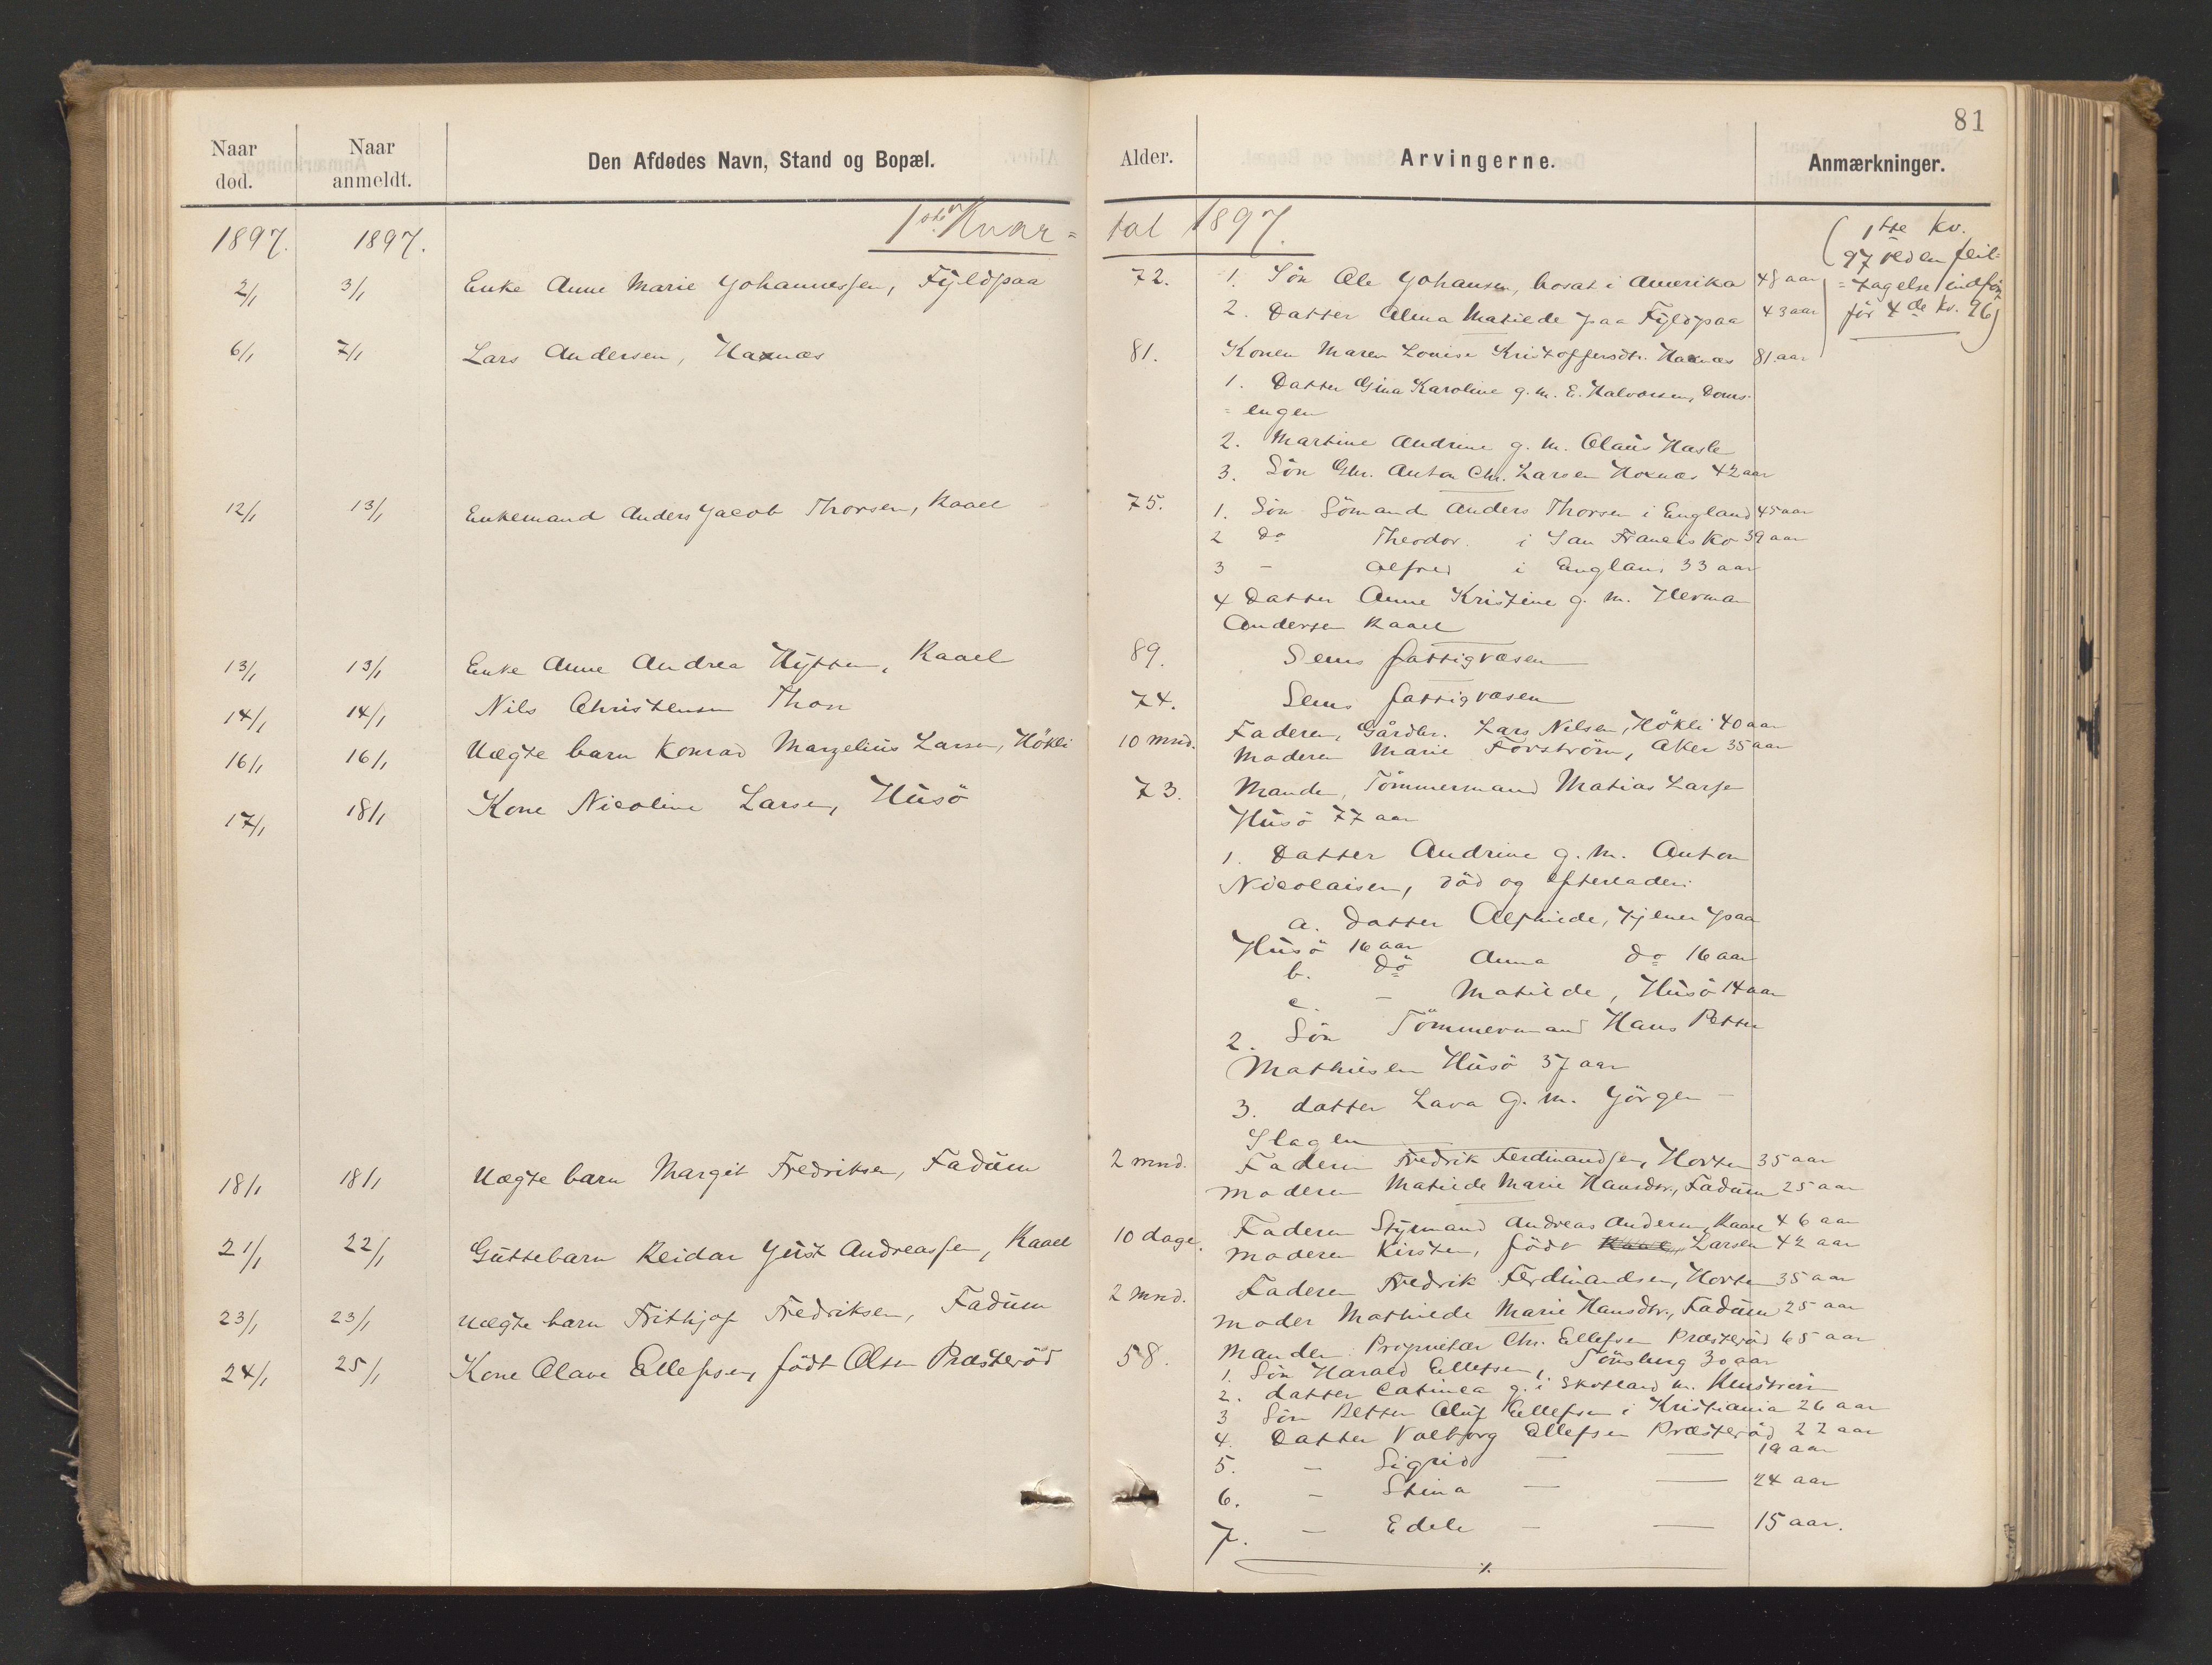 81
Naar død.
Naar anmeldt.
Den Afdødes Navn, Stand og Bopæl.
Alder.
Arvingerne.
Anmærkninger.
1897. 1897. 1ste Kvar= tal 1897.
(1ste Kv.
97 ved en feil=
=tagelse indført
før 4de Kv. 96)
2/1 3/1 Enke Anne Marie Johannessen, Fyldpaa 72. 1. Søn Ole Johansen, bosat i Amerika 48 aar
2. Datter Alma Matilde paa Fyldpaa 43 aar
6/1 7/1 Lars Andersen, Haxnæs 81. Konen Maren Louise Kristoffersdtr. Haxnæs 81 aar
1. Datter Gina Karoline g.m. E. Halvorsen, Doms=
=engen
2. Martine Andrine g.m. Olaus Hasle
3. Søn Gbr. Anton Chr. Larsen Hoxnæs 42 aar
12/1 13/1 Enkemand Anders Jacob Thorsen, Kaael 75. 1. Søn Sömand Anders Thorsen i England 45 aar
2 do Theodor. i San Francisko 39 aar
3 - Alfred i England 33 aar
4 Datter Anne Kristine g.m. Herman
Andersen Kaael
13/1 13/1 Enke Anne Andrea Hytten, Kaael 89. Sems fattigvæsen
14/1 14/1 Nils Christensen Thon 74. Sems fattigvæsen
16/1 16/1 Uægte barn Konrad Marzelius Larsen, Hökli 10 mnd. Faderen, Gårdbr. Lars Nilsen, Hökli 40 aar
Moderen Marie Forström, Aker 35 aar
17/1 18/1 Kone Nicoline Larsen, Husö 73. Manden, Tömmermand Matias Larsen
Husö 77 aar
1. Datter Andrine g.m. Anton
Nicolaisen, död og efterlader:
a. Datter Alfhilde, tjener paa
Husö 16 aar
b. do Anna do 16 aar
c - Matilde, Husö 14 aar
2. Sön Tömmermand Hans Petter
Mathisen Husö 37 aar
3. datter Lava g.m. Jörgen -
Slagen
18/1 18/1 Uægte barn Margit Fredriksen, Fadum 2 mnd. Faderen Fredrik Ferdinandsen, Horten 35 aar
Moderen Matilde Marie Hansdtr., Fadum 25 aar
21/1 22/1 Guttebarn Reidar Just Andreassen, Kaael 10 dage. Faderen Styrmand Andreas Andersen, Kaael 46 aar
Moderen Kirsten, födt Kaael Larsen 42 aar
23/1 23/1 Uægte barn Frithjof Fredriksen, Fadum 2 mnd. Faderen Fredrik Ferdinandsen, Horten 35 aar
Moder Mathilde Marie Hansdtr., Fadum 25 aar
24/1 25/1 Kone Olave Ellefsen, födt Olsen Præsteröd 58. Manden Proprietær Chr. Ellefsen Præsteröd 65 aar
1. Sön Harald Ellefsen, Tönsberg 30 aar
2. datter Catinca g. i Skotland m.
3 Sön Petter Oluf Ellefsen i Kristiania 26 aar
4. Datter Valborg Ellefsen Præsteröd 22 aar
5. - Sigrid - - 19 aar
6. - Stina - - 24 aar
7. - Edele - - 15 aar.